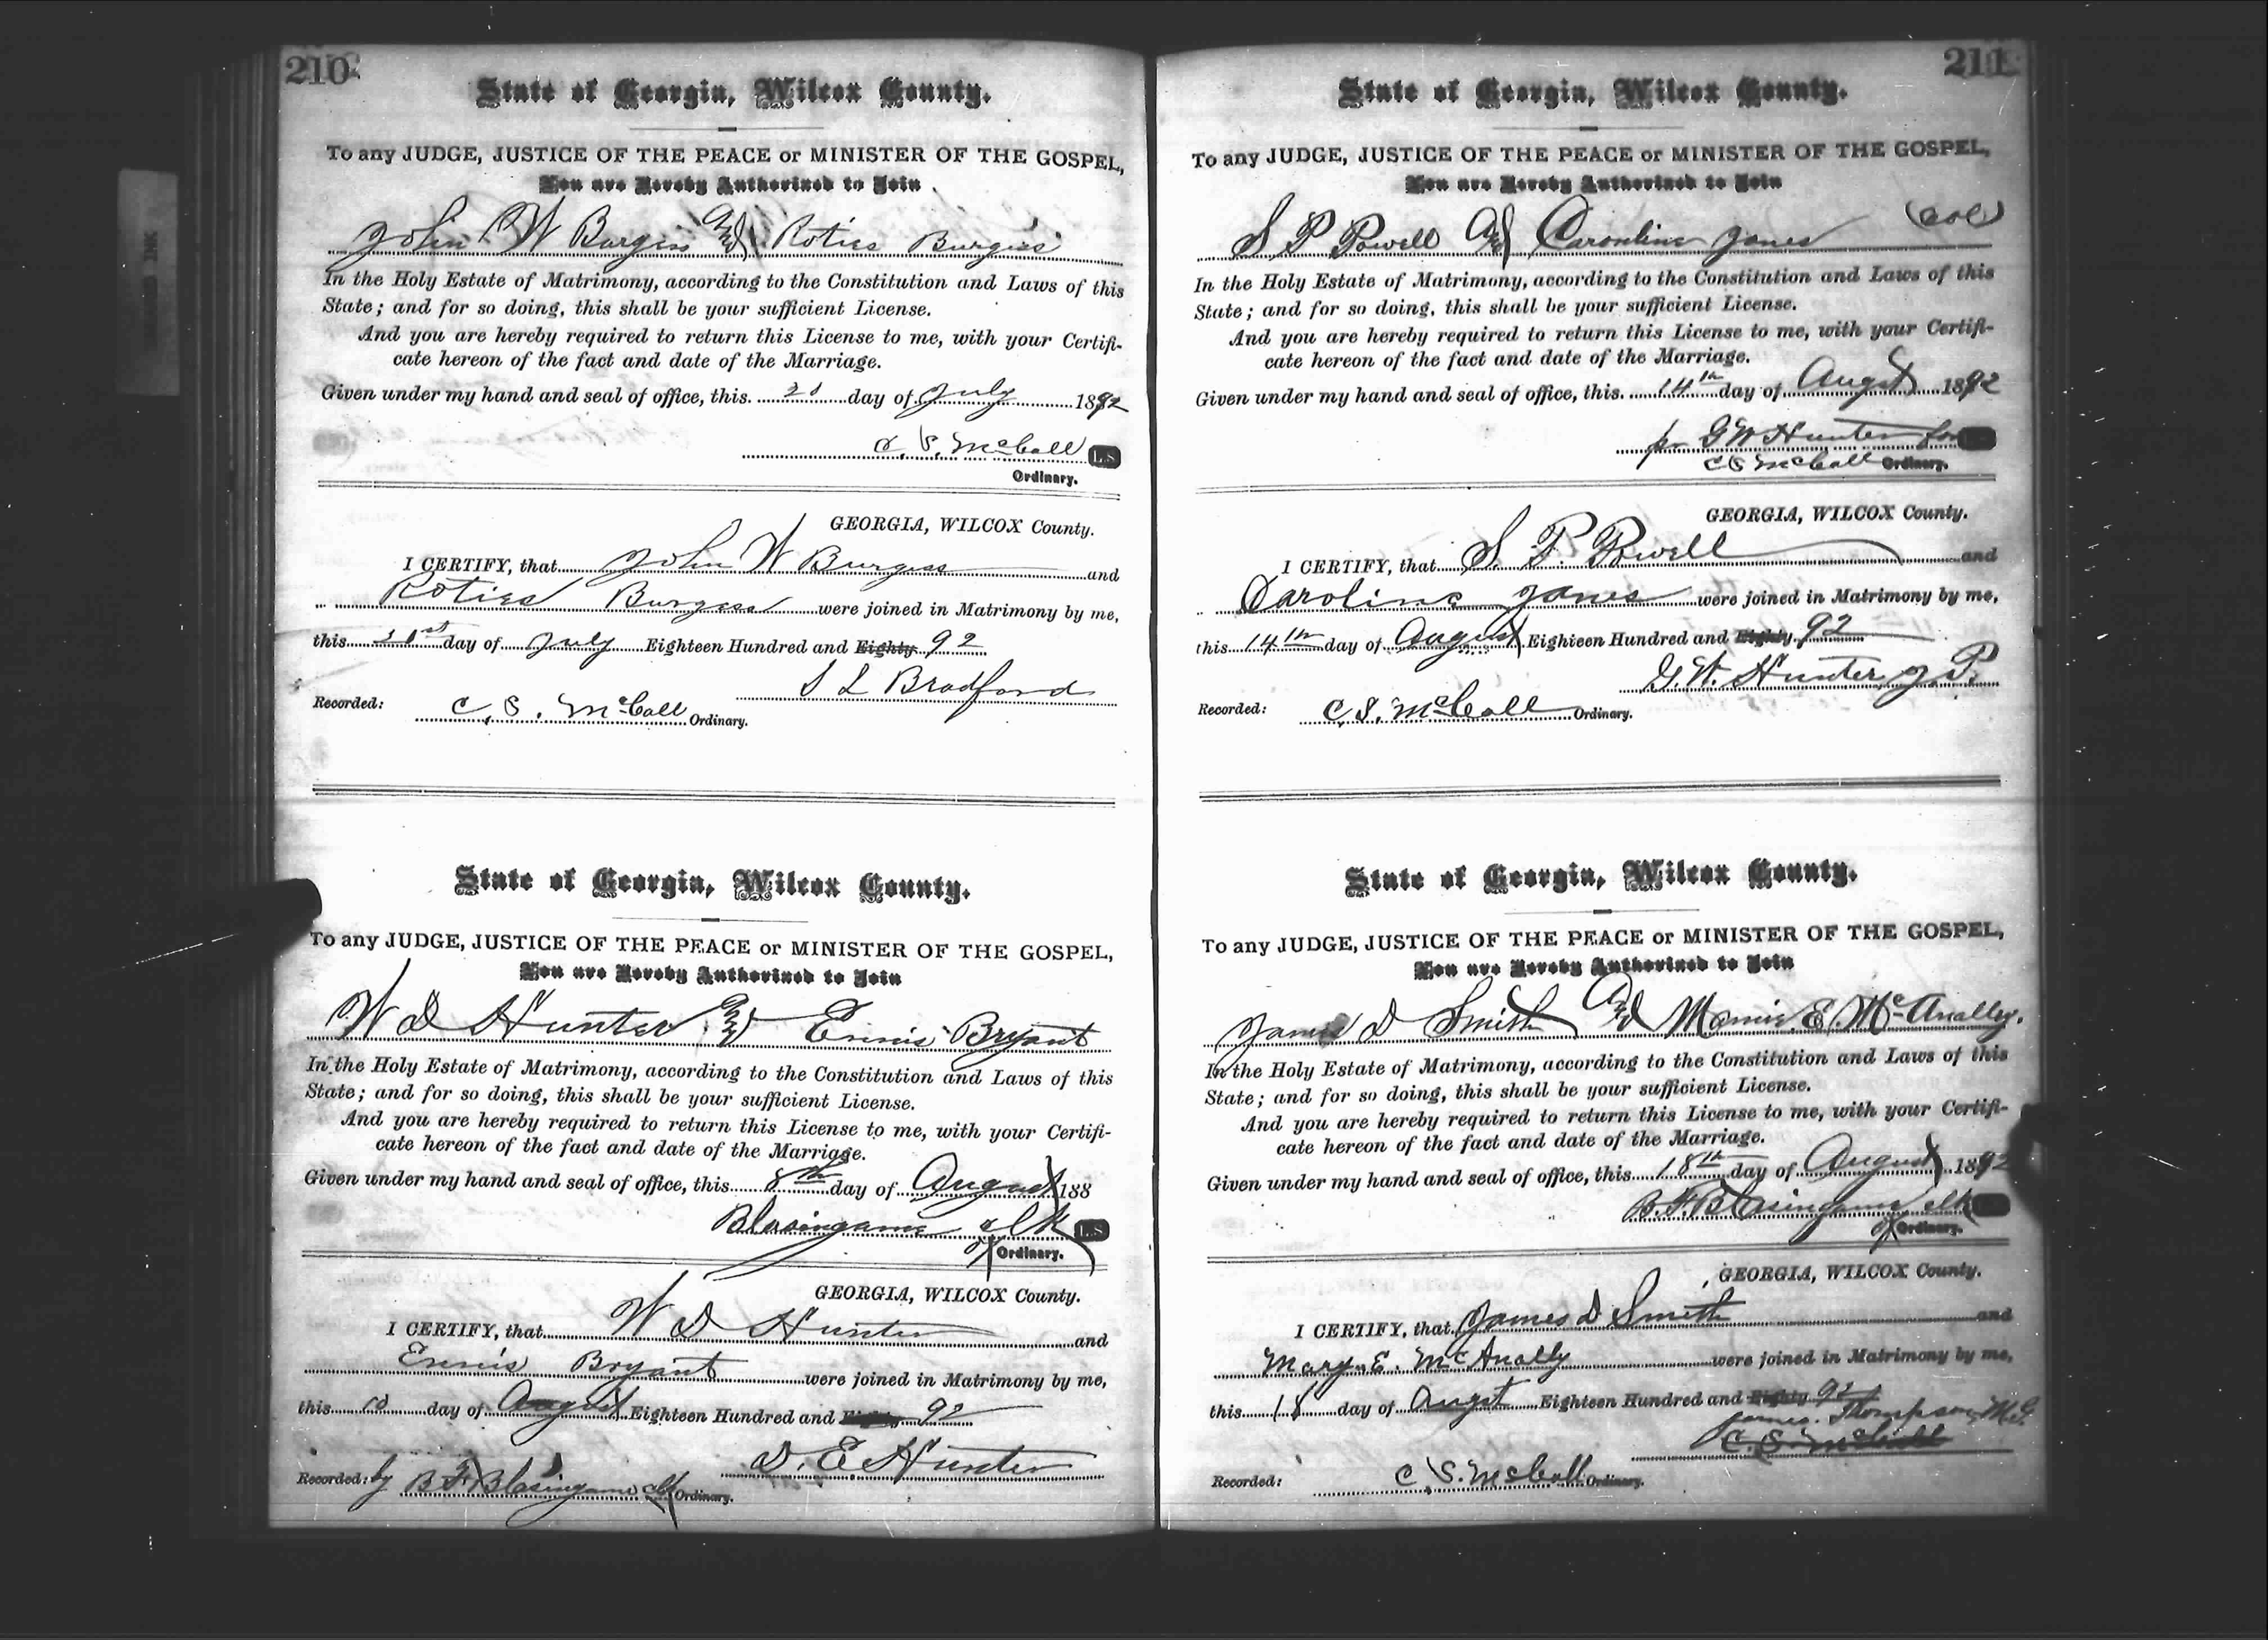 210
State of Georgia, Wilcox County.
To any JUDGE, JUSTICE OF THE PEACE or MINISTER OF THE GOSPEL,
You are Hereby Authorized to Join
John W Burgess And Roties Burgess
In the Holy Estate of Matrimony, according to the Constitution and Laws of this
State; and for so doing, this shall be your sufficient License.
And you are hereby required to return this License to me, with your Certifi-
cate hereon of the fact and date of the Marriage.
Given under my hand and seal of office, this day of July 1892
C. S. McCall L.S.
Ordinary.
GEORGIA, WILCOX County.
I CERTIFY, that John W Burgess and
Roties Burgess were joined in Matrimony by me,
this day of July Eighteen Hundred and Eighty 92
S L Bradford
Recorded: C. S. McCall Ordinary.
State of Georgia, Wilcox County.
To any JUDGE, JUSTICE OF THE PEACE or MINISTER OF THE GOSPEL,
You are Hereby Authorized to Join
W D Hunter And Ennis Bryant
In the Holy Estate of Matrimony, according to the Constitution and Laws of this
State; and for so doing, this shall be your sufficient License.
And you are hereby required to return this License to me, with your Certifi-
cate hereon of the fact and date of the Marriage.
Given under my hand and seal of office, this 8th day of August 188
Blasingame clk L.S.
of Ordinary.
GEORGIA, WILCOX County.
I CERTIFY, that W D Hunter and
Ennis Bryant were joined in Matrimony by me,
this 10 day of August Eighteen Hundred and Eighty 92
D. E. Hunter
Recorded: by B F Blasingame clk Ordinary.
211
State of Georgia, Wilcox County.
To any JUDGE, JUSTICE OF THE PEACE or MINISTER OF THE GOSPEL,
You are Hereby Authorized to Join
S P Powell And Caronline Jones (col)
In the Holy Estate of Matrimony, according to the Constitution and Laws of this
State; and for so doing, this shall be your sufficient License.
And you are hereby required to return this License to me, with your Certifi-
cate hereon of the fact and date of the Marriage.
Given under my hand and seal of office, this 14th day of Augst 1892
pr G W Hunter for
C S McCall Ordinary.
GEORGIA, WILCOX County.
I CERTIFY, that S. P. Powell and
Caroline Jones were joined in Matrimony by me,
this 14th day of August Eighteen Hundred and Eighty 92
G. W. Hunter J P.
Recorded: C. S. McCall Ordinary.
State of Georgia, Wilcox County.
To any JUDGE, JUSTICE OF THE PEACE or MINISTER OF THE GOSPEL,
You are Hereby Authorized to Join
James D Smith And Mamie E. McAnalley.
In the Holy Estate of Matrimony, according to the Constitution and Laws of this
State; and for so doing, this shall be your sufficient License.
And you are hereby required to return this License to me, with your Certifi-
cate hereon of the fact and date of the Marriage.
Given under my hand and seal of office, this 18th day of August 1892
B. F. Blasingame clk
of Ordinary.
GEORGIA, WILCOX County.
I CERTIFY, that James D Smith and
Mary E. McAnally were joined in Matrimony by me,
this 18 day of Augst Eighteen Hundred and Eighty 92
James Thompson M.G.
C. S. McCall
Recorded: C S. McCall Ordinary.